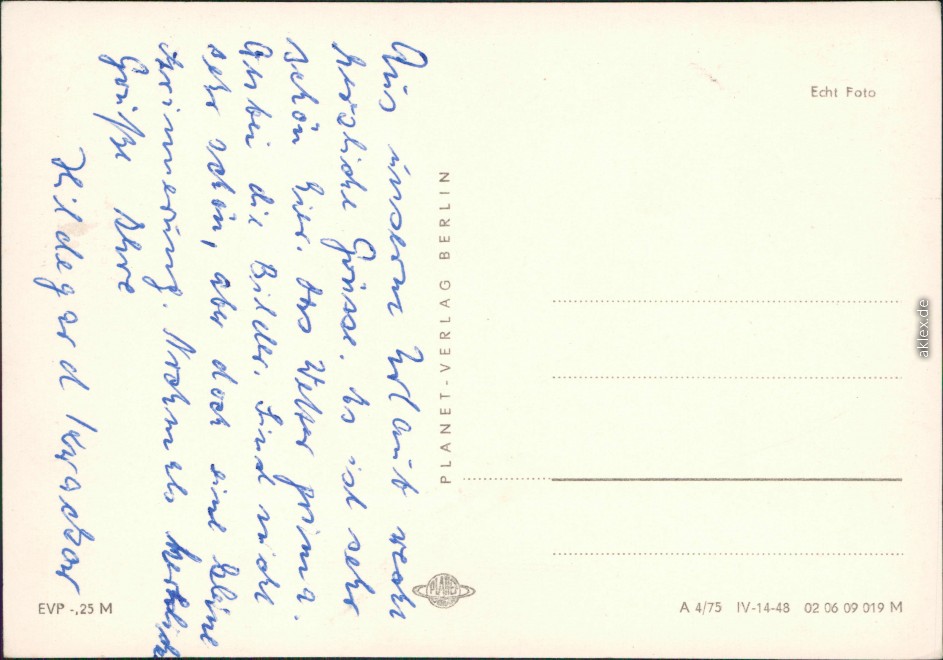 Aus unserem Urlaub recht
herzliche Grüsse. Es ist sehr
schön hier. Das Wetter prima.
Anbei die Bilder. Sind nicht
sehr schön, aber doch eine kleine
Erinnerung. Nochmals herzliche
Grüße Ihre
Hildegard
PLANET-VERLAG BERLIN
PLANET
Echt Foto
EVP -,25 M
A 4/75 IV-14-48 02 06 09 019 M
aklex.de